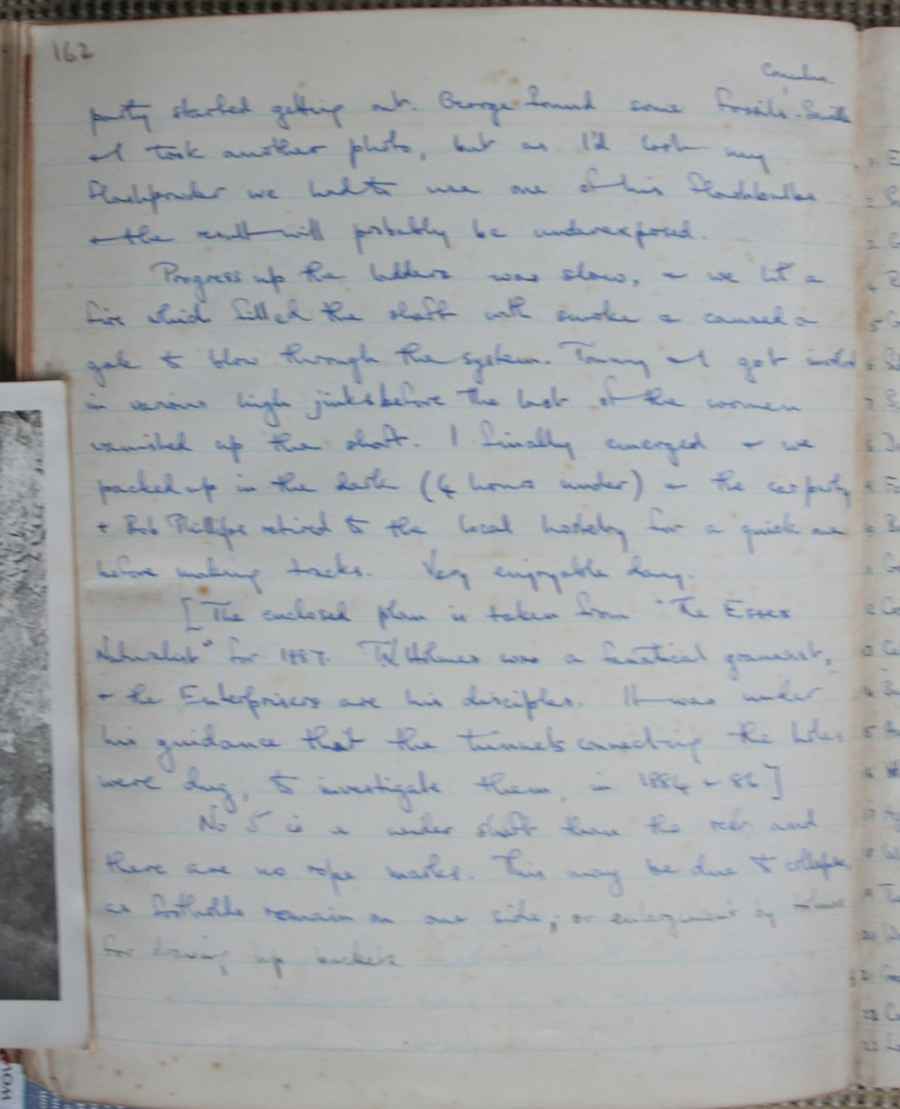 162
party started getting out. George found some fossils.
+ I took another photo, but as I'd lost my
flashpowder we had to use one of his flashbulbs
+ the result will probably be underexposed.
Progress up the ladders was slow, + we lit a
fire which filled the shaft with smoke + caused a
gale to blow through the system. Tommy + I got
in various high jinks before the last of the women
vanished up the shaft. I finally emerged + we
packed up in the dark (4 hours under) + the car party
+ Bob Phillips retired to the local hostelry for a quick one
before making tracks. Very enjoyable day.
[The enclosed plan is taken from "The Essex
Naturalist" for 1887. TV Holmes was a fanatical
+ the Enterprisers are his disciples. It was under
his guidance that the tunnels connecting the holes
were dug, to investigate them, in 1884 + 86]
No 5 is a wider shaft than the rest and
there are no rope marks. This may be due to collapse,
as footholds remain on one side; or enlargement by
for drawing up buckets